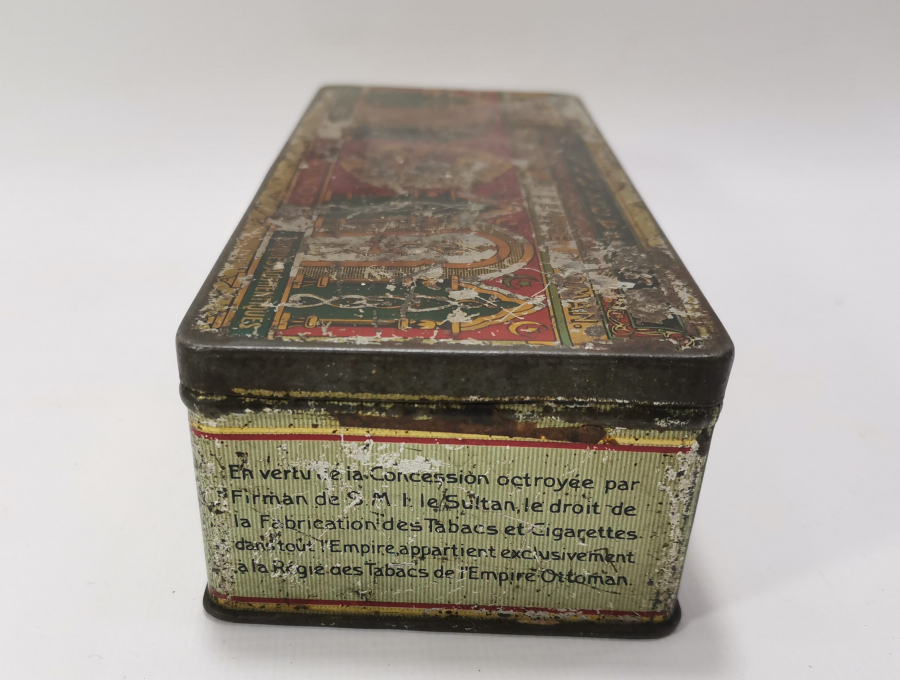 En vertu de la Concession octroyée par
Firman de S. M. I. le Sultan, le droit de
la Fabrication des Tabacs et Cigarettes
dans tout l'Empire, appartient exclusivement
à la Régie des Tabacs de l'Empire Ottoman.